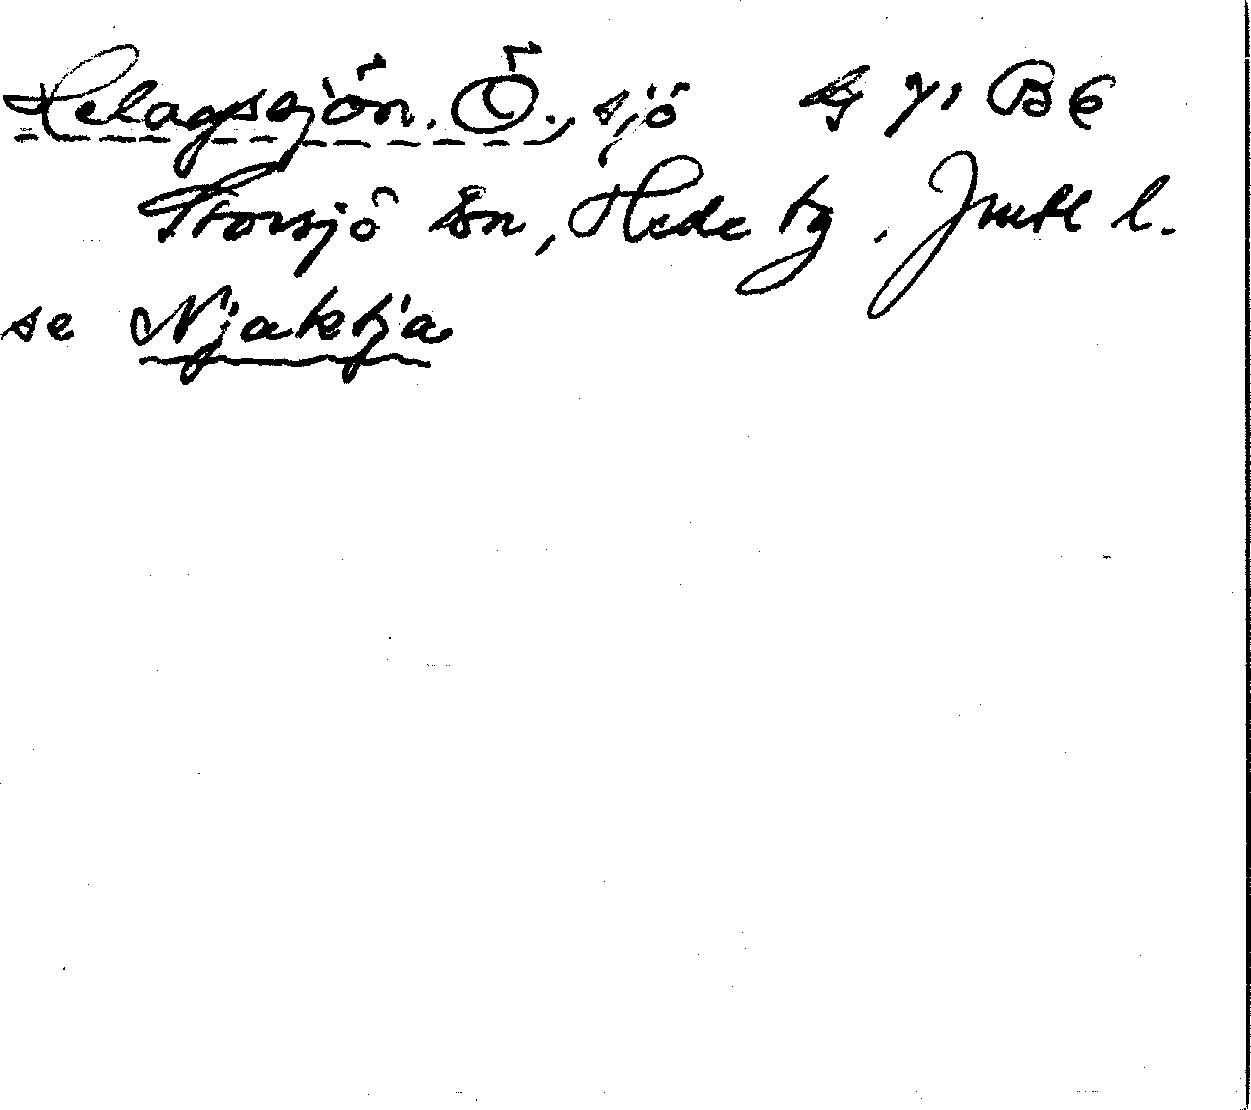 Helagssjön, Ö., sjö
Storsjö sn, Hede tg. Jmtl l.
se Njaktja